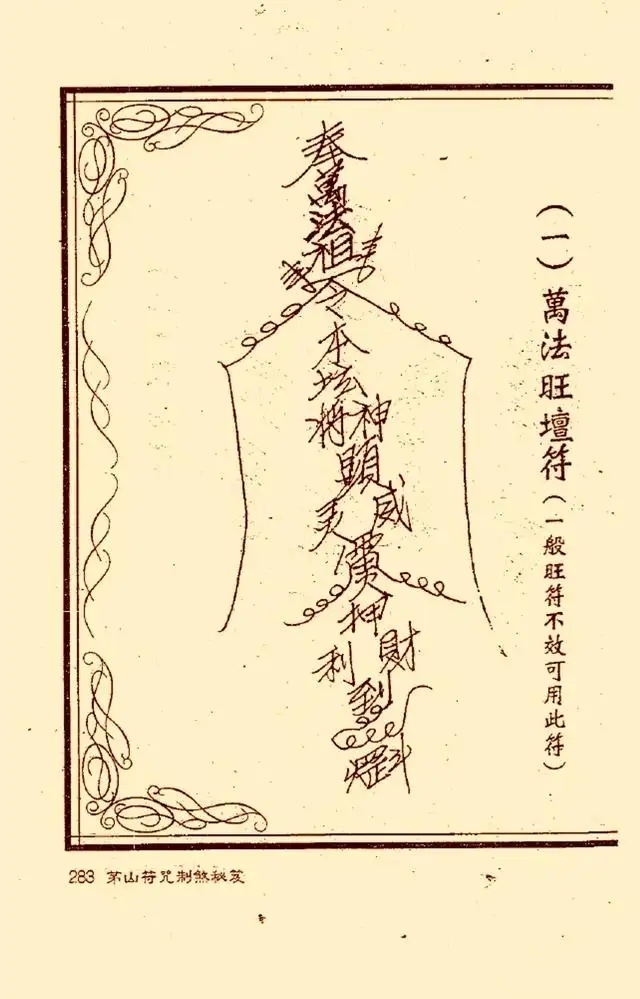 （一）萬法旺壇符（一般旺符不效可用此符）
奉
萬
法
祖
令
本
坛
神將
顯
威灵
押
財利
到
283 茅山符咒制煞秘笈